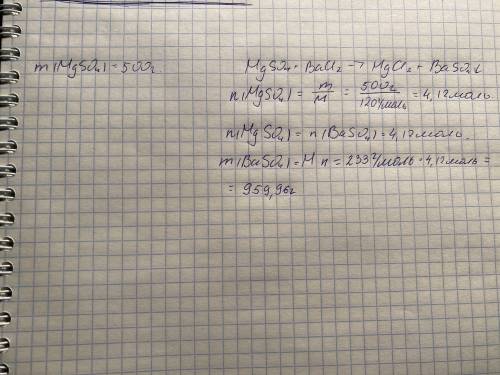 m(MgSO₄) = 500г.
MgSO₄ + BaCl₂ → MgCl₂ + BaSO₄↓
n(MgSO₄) = m/M = 500г/120г/моль = 4,12моль
n(MgSO₄) = n(BaSO₄) = 4,12моль.
m(BaSO₄) = M·n = 233г/моль · 4,12моль =
= 959,96г